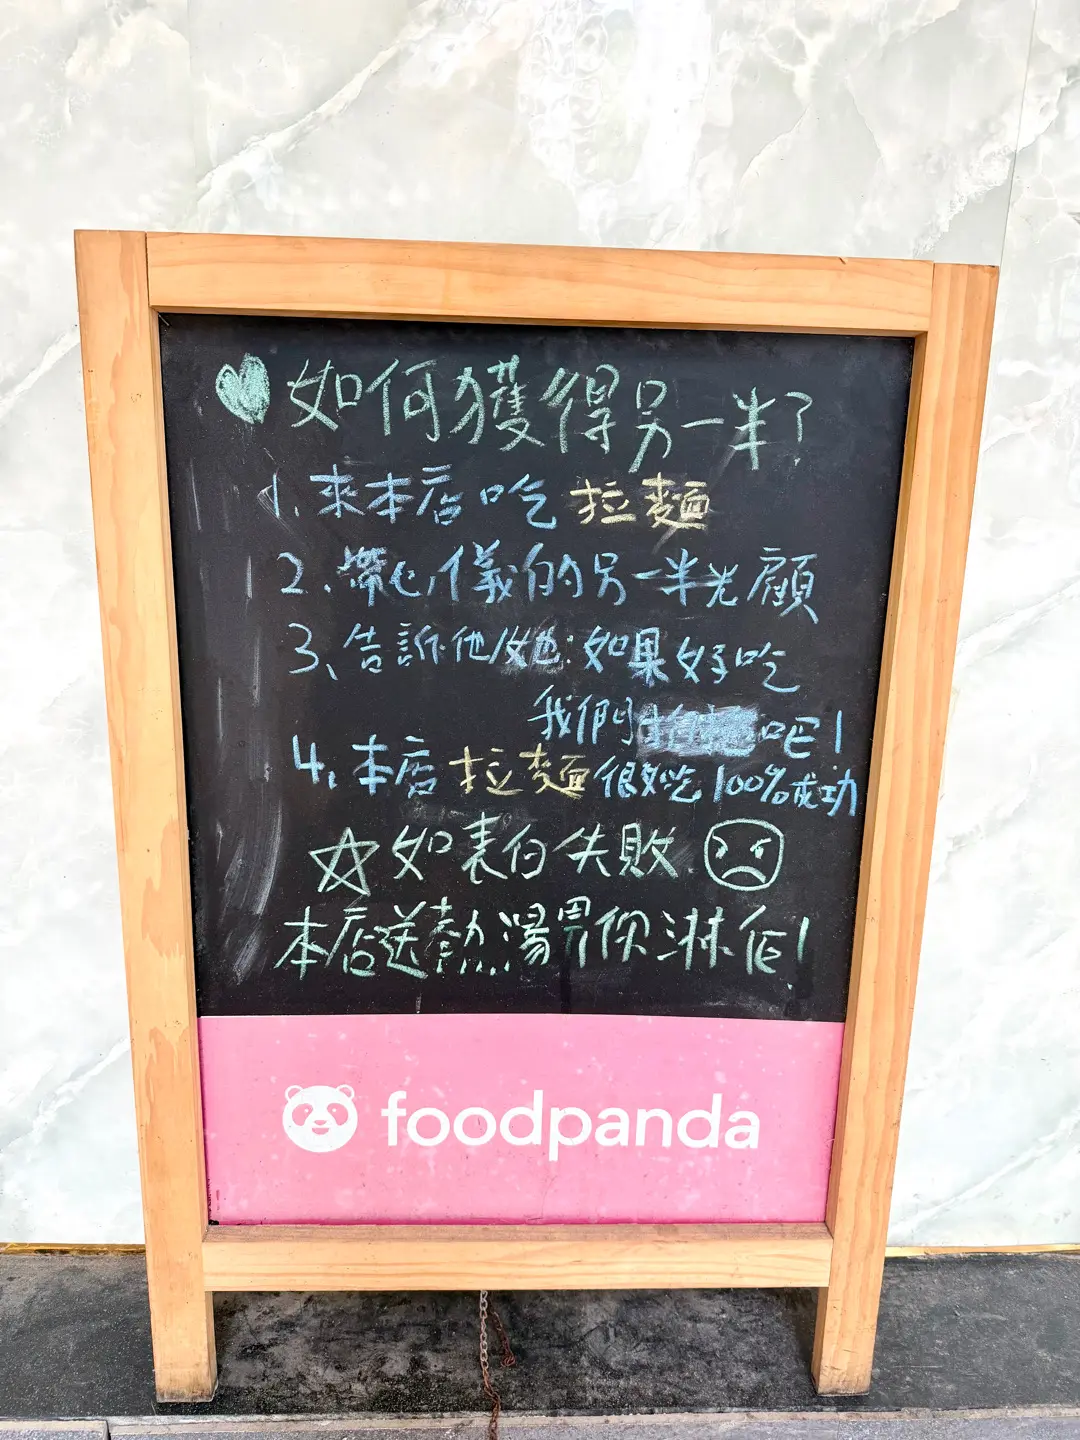 如何獲得另一半?
1. 來本店吃拉麵
2. 帶心儀的另一半光顧
3、告訴他/她:如果好吃
我們 吧!
4、本店拉麵很好吃100%成功
☆如表白失敗
本店送熱湯畀你淋佢!
foodpanda